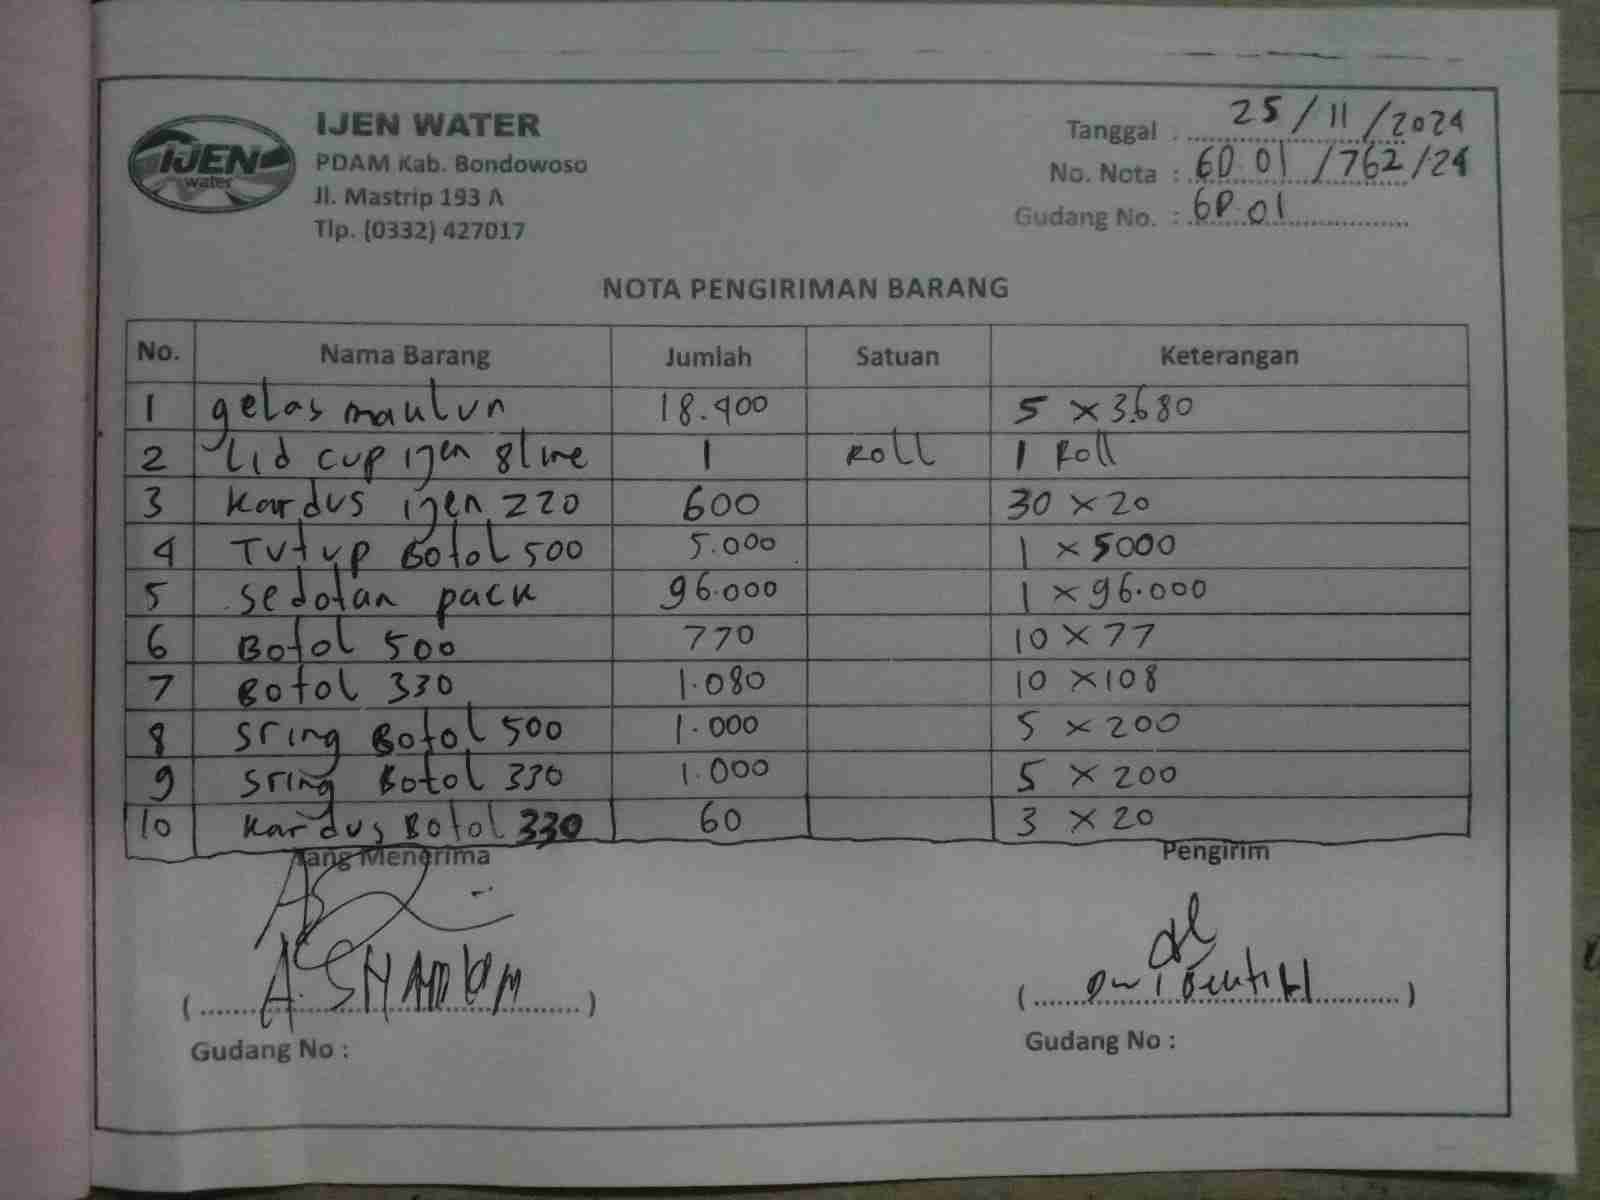 IJEN WATER
PDAM Kab. Bondowoso
Jl. Mastrip 193 A
Tlp. (0332) 427017
IJEN
water
Tanggal : 25/11/2024
No. Nota : 6D.01/762/24
Gudang No. : 6D.01
NOTA PENGIRIMAN BARANG
No. Nama Barang Jumlah Satuan Keterangan
1 gelas maulun 18.400 5 x 3.680
2 Lid cup ijen 8 line 1 Roll 1 Roll
3 Kardus ijen 220 600 30 x 20
4 Tutup Botol 500 5.000 1 x 5000
5 Sedotan pack 96.000 1 x 96.000
6 Botol 500 770 10 x 77
7 Botol 330 1.080 10 x 108
8 Sring Botol 500 1.000 5 x 200
9 Sring Botol 330 1.000 5 x 200
10 Kardus Botol 330 60 3 x 20
Yang Menerima Pengirim
Gudang No : Gudang No :